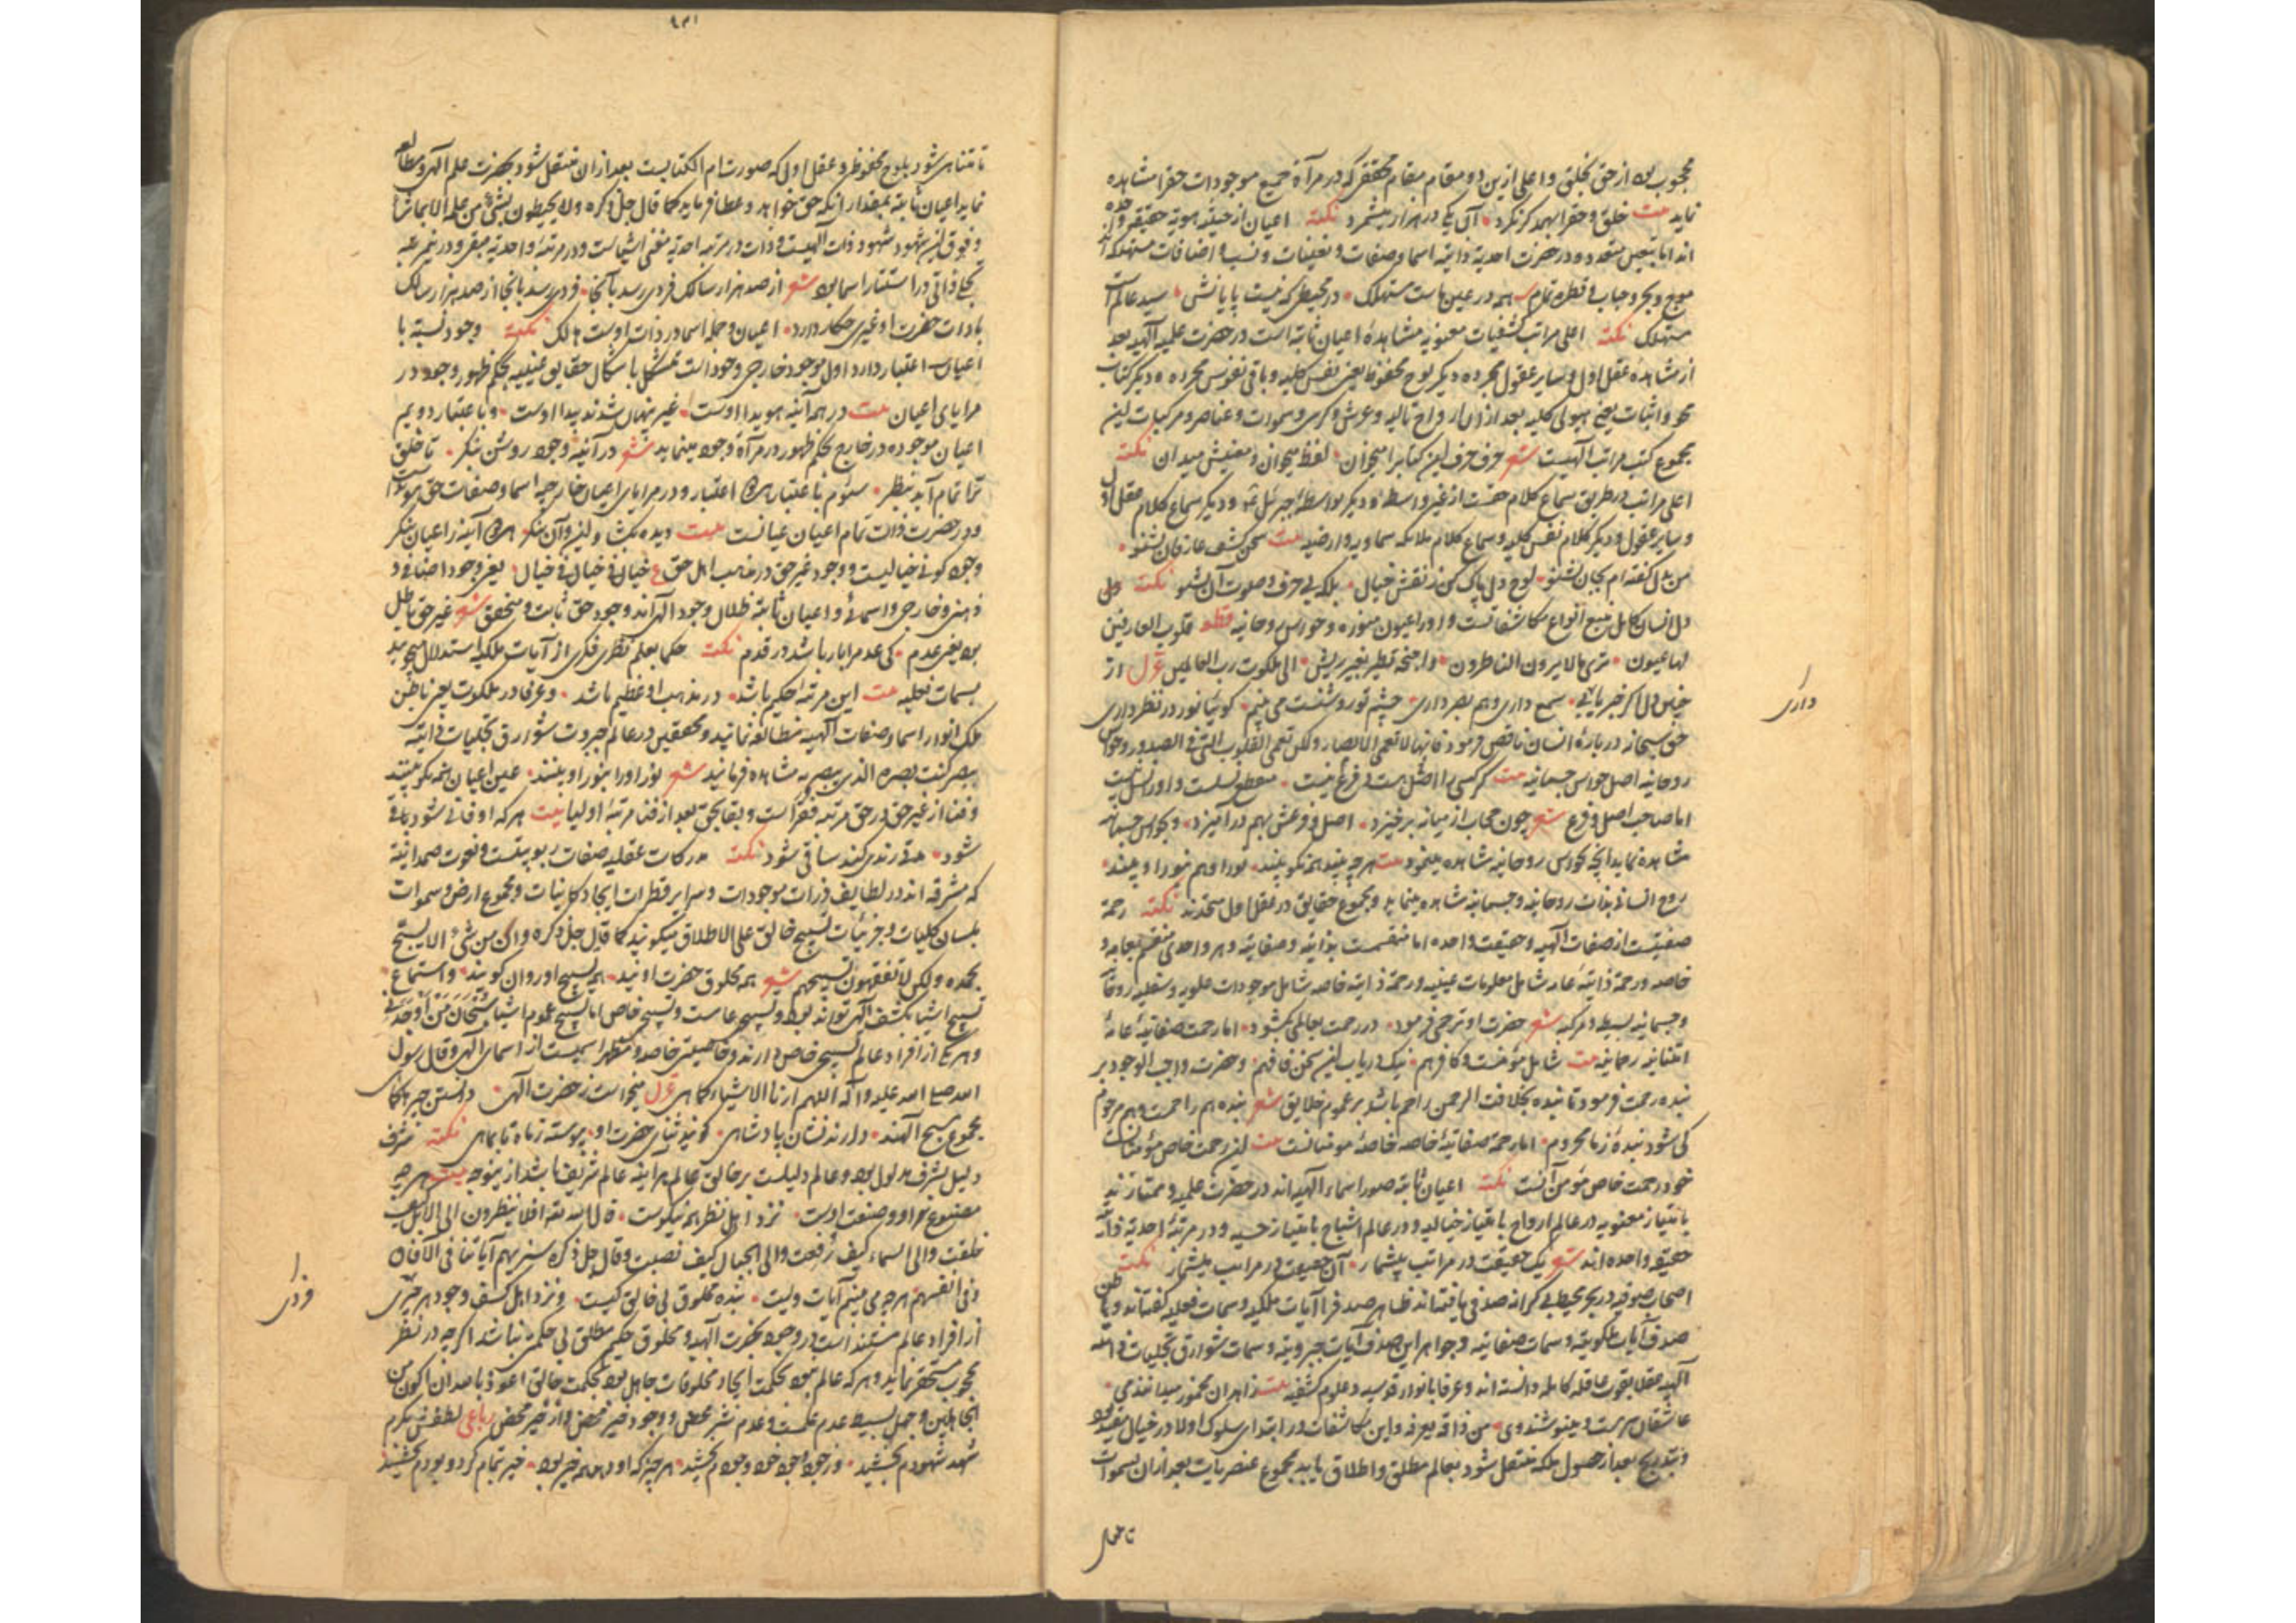 محجوب بود از حق بخلق و اعلی ازین دو مقام مقام محققی که در مرآة جمیع موجودات حق را مشاهده
نماید بیت خلق و حق را بهمدگر نگرد • آن یکی در هزار میشمرد نکته اعیان از حیثیه هویه حقیقی واحده
اند اما بتعین متعدد و در حضرت احدیه ذاتیه اسما و صفات و تعینات و نسب و اضافات مستهلک اند
موج و بحر و حباب و قطره تمام همه در عین ماست مستهلک • در محیطی که نیست پایانش • سید عالم است
مستهلک نکته اعلی مراتب کشفیات معنویه مشاهدهٔ اعیان ثابته است در حضرت علمیه الهیه بعد
از مشاهدهٔ عقل اول و سایر عقول مجرده دیگر لوح محفوظ یعنی نفس کلیه و باقی نفوس مجرده و دیگر کتاب
محو و اثبات یعنی هیولی کلیه بعد از آن ارواح تالیه و عرش و کرسی و سموات و عناصر و مرکبات این
مجموع کتب مراتب الهیست شعر حرف حرف این کتاب را میخوان • لفظ میخوان و معنیش میدان نکته
اعلی مراتب در طریق سماع کلام حقست از غیر واسطه و دیگر بواسطهٔ جبرئیل و دیگر سماع کلام عقل اول
و سایر عقول و دیگر کلام نفس کلیه و سماع کلام ملائکه سماویه و ارضیه بیت سخن کشف عارفان بشنو •
من بدل گفته‌ام بجان بشنو • لوح دل پاک کن ز نقش خیال • بلکه بی حرف و صوت آن بشنو نکته
دل انسان کامل منبع انواع مکاشفاتست و او را عیون منوره و حواس روحانیه قطعه قلوب العارفین
لها عیون • تری ما لا یرون الناظرون • و اجنحة تطیر بغیر ریش • الی ملکوت رب العالمین غزل از
دل اگر خبر یابی • سمع داری و هم بصر داری • چشم تو روشنست می بینم • گوئیا نور در نظر داری
حق سبحانه دربارهٔ انسان ناقص فرمود فانها لا تعمی الابصار ولکن تعمی القلوب التی فی الصدور و حواس
روحانیه اصل حواس جسمانیه بیت هر کسی را اصل هست و فرع نیست •
اما صاحب اصل و فرع شعر چون حجاب از میانه برخیزد • اصل و فرعش بهم درآمیزد • و بحواس جسمانیه
مشاهده نماید آنچه بحواس روحانیه مشاهده مینمود بیت هرچه بیند همه نکو بیند • نور او هم بنور او بیند •
روح انسانی بذات روحانیه و جسمانیه مشاهده مینماید و مجموع حقایق در عقل اول متحدند نکته رحمة
صفتیست از صفات الهیه و حقیقت واحده اما منقسمست بذاتیه و صفاتیه و هر واحدی منقسم بعامه و
خاصه و رحمة ذاتیهٔ عامه شامل معلومات عینیه و رحمة ذاتیه خاصه شامل موجودات علویه و سفلیه روحانیه
و جسمانیه بسیطه و مرکبه شعر حضرت او ترحمی فرمود • در رحمت بعالمی بگشود • اما رحمت صفاتیهٔ عامهٔ
امتنانیه رحمانیه بیت شامل مؤمنست و کافر هم • نیک دریاب این سخن فافهم • و حضرت واجب الوجود بر
بنده رحمت فرمود تا بنده بخلافت الرحمن راحم باشد بر عموم خلایق شعر بنده هم راحمست و هم مرحوم
کی شود بندهٔ ز ما محروم • اما رحمة صفاتیهٔ خاصه خاصهٔ مومنانست بیت این رحمت خاص مؤمنانست
خود رحمت خاص مؤمن آنست نکته اعیان ثابته صور اسماء الهیه‌اند در حضرت علمیه و ممتازند
بامتیاز معنویه در عالم ارواح بامتیاز خیالیه و در عالم اشباح بامتیاز حسیه و در مرتبهٔ احدیه ذاتیه
حقیقه واحده‌اند شعر یک حقیقت در مراتب بیشمار • آن حقیقت در مراتب بیشمار نکته
اصحاب صوفیه در بحر محیط بی کرانه صدفی یافته‌اند ظاهر صدف را آیات ملکیه و سمات فعلیه گفته‌اند و باطن
صدف آیات ملکوتیه و سمات صفاتیه و جواهر این صدف آیات جبروتیه و سمات شوارق تجلیات ذاتیه
الهیه عقلا بقوت عاقله کامله دانسته‌اند و عرفا بانوار قدسیه و علوم کشفیه بیت زاهدان مخمور میدانند می •
عاشقان سرمست و مینوشند وی • من ذاقه یعرفه و این مکاشفات در ابتدای سلوک اولا در خیال مقید بود
و بتدریج بعد از حصول ملکه منتقل شود بعالم مطلق و اطلاق یابد بمجموع عنصریات بعد از آن بسموات
داری
تا متناهی شود بلوح محفوظ و عقل اول که صورت ام الکتابست بعد از آن منتقل شود بحضرت علم الهی و مطالعه
نماید اعیان ثابته بمقدار آنکه حق خواهد و عطا فرماید کما قال جل ذکره ولا یحیطون بشئ من علمه الا بما شاء
و فوق این شهود شهود ذات الهیست و ذات در مرتبه احدیه مفنی اشیاست و در مرتبهٔ واحدیه مبقی و در مرتبه
تجلی ذاتی در استتار اسما بود شعر از صد هزار سالک فردی رسد بآنجا • فردی رسد بآنجا از صد هزار سالک
با ذات حضرت او غیری چکار دارد • اعیان و جمله اسما در ذات اوست هالک نکته وجود نسبة با
اعیان اعتبار دارد اول موجود خارجی وجود است متشکل باشکال حقایق عینیه بحکم ظهور وجود در
مرایای اعیان بیت در همه آینه هویدا اوست • غیر پنهان شدند پیدا اوست • و باعتبار دویم
اعیان موجوده در خارج بحکم ظهور در مرآة وجود مینماید شعر در آینهٔ وجود روشن بنگر • تا خلق
ترا تمام آید بنظر • سیوم باعتبار هر دو اعتبار و در مرایای اعیان خارجیه اسما و صفات حق هویداست
و در حضرت ذات تمام اعیان عیانست بیت دیده بگشا و این و آن بنگر هر دو آینه را عیان بنگر
وجود کونی خیالیست و وجود غیر حق در مذهب اهل حق ع خیال فی خیال فی خیال • یعنی وجود اضافی و
ذهنی و خارجی و اسمائی و اعیان ثابته ظلال وجود الهی‌اند و وجود حق ثابت و متحقق شعر غیر حق باطل
بود یعنی عدم • کی عدم را بار باشد در قدم نکته حکما بعلم نظری فکری از آیات ملکیه استدلال میجویند
بسمات فعلیه بیت این مرتبهٔ حکیم باشد • در مذهب او عظیم باشد • و عرفا در ملکوت یعنی باطن
ملک انوار اسما و صفات الهیه مطالعه نمایند و محققین در عالم جبروت شوارق تجلیات ذاتیه
ببصر کنت بصره الذی یبصر به مشاهده فرمایند شعر نور او را بنور او بینند • عین اعیان همه نکو بینند
و فنا از غیر حق در حق مرتبه فقراست و بقا بحق بعد از فنا مرتبهٔ اولیا بیت هر که او فانی شود باقی
شود • مدتی رندی کند ساقی شود نکته مدرکات عقلیه صفات ربوبیتست و نعوت صمدانیة
که مشرقه‌اند در لطایف ذرات موجودات و سرایر قطرات ایجاد کاینات و مجموع ارض و سموات
بلسان کلیات و جزئیات تسبیح خالق علی الاطلاق میگویند کما قال جل ذکره وان من شئ الا یسبح
بحمده ولکن لا تفقهون تسبیحهم شعر همه مخلوق حضرت اویند • همه تسبیح او روان گویند • و استماع
تسبیح اشیا بکشف الهی تواند بود و تسبیح عامست و تسبیح خاص اما تسبیح عموم اشیا سُبْحَانَ مَنْ اَوْجَدَنی
و هر یکی از افراد عالم تسبیحی خاص دارند و خاصیتی خاصه و مظهر اسمیست از اسمای الهی و قال رسول
الله صلی الله علیه و آله اللهم ارنا الاشیاء کما هی غزل میخواست ز حضرت الهی • دانستن چیزها کماهی
مجموع مسبح الهند • دارند نشان پادشاهی • گویند ثنای حضرت او • پیوسته ز ماه تا بماهی نکته شرف
دلیل بشرف مدلول بود و عالم دلیلست بر خالق عالم هرآینه عالم شریف باشد ازینوجه بیت هرچه
مصنوع او و صنعت اوست • نزد اهل نظر همه نیکوست • قال الله تعه افلا ینظرون الی الابل کیف
خلقت والی السماء کیف رُفعت والی الجبال کیف نصبت و قال جل ذکره سنریهم آیاتنا فی الآفاق
و فی انفسهم هرچه می بینم آیات ویست • بنده مخلوق بی خالق کیست • و نزد اهل کشف وجود هر چیزی
از افراد عالم مستند است در وجود بحضرت الهیه و مخلوق حکیم مطلق بی حکمتی نباشد اگرچه در نظر
محجوب مستحقر نماید و هر که عالم بود بحکمت ایجاد مخلوقات جاهل بود بحکمت خالق اعوذ بالله ان اکون من
الجاهلین و جهل بسیط عدم علمست و عدم شر محض و وجود خیر محض و از خیر محض رباعی لطفش بکرم
شهد شهودم بخشید • وز جود وجود خود وجودم بخشید • هر چیز که او دهد همه خیر بود • خیر تمام کرد و بودم بخشید
فردی